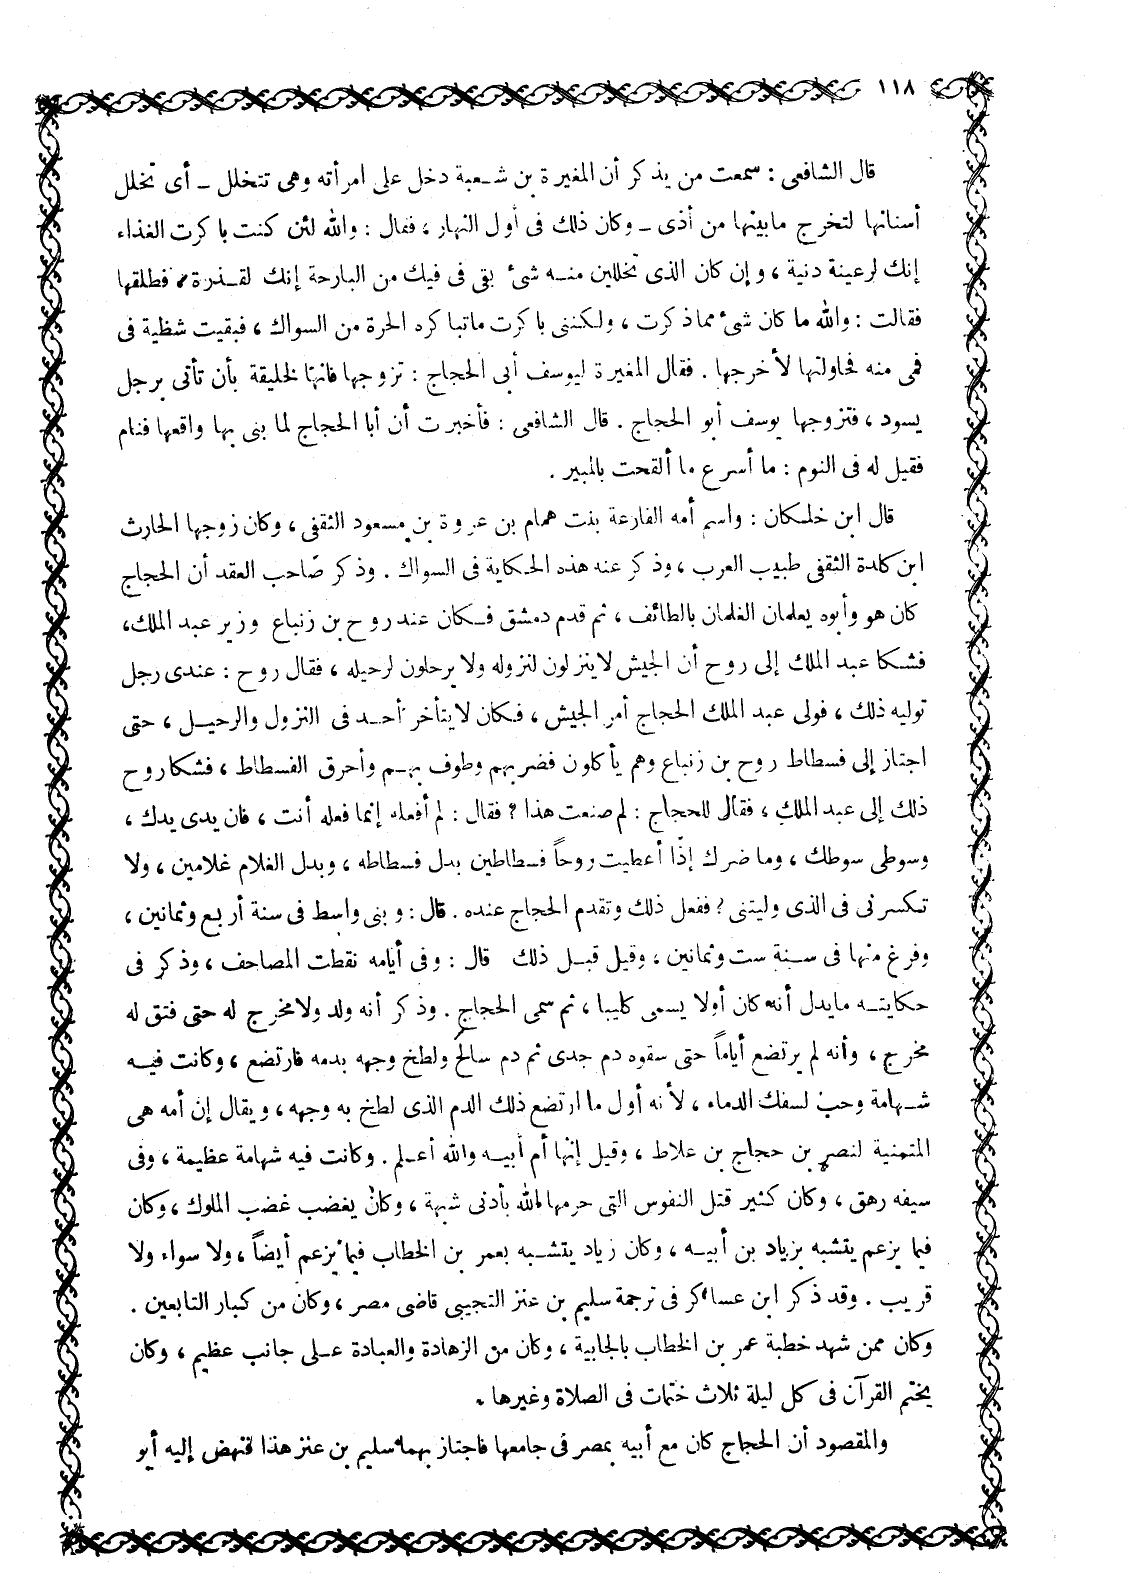 ١١٨
قال الشافعى : سمعت من يذكر أن المغيرة بن شعبة دخل على امرأته وهى تتخلل ــ أى تخلل
أسنانها لتخرج مابينها من أذى ــ وكان ذلك فى أول النهار ، فقال : والله لئن كنت باكرت الغذاء
إنك لرعينة دنية ، وإن كان الذى تخللين منه شىء بقى فى فيك من البارحة إنك لقذرة ، فطلقها
فقالت : والله ما كان شىء مما ذكرت ، ولكننى باكرت ماتباكره الحرة من السواك ، فبقيت شظية فى
فمى منه فحاولتها لأخرجها . فقال المغيرة ليوسف أبى الحجاج : تزوجها فانها لخليقة بأن تأتى برجل
يسود ، فتزوجها يوسف أبو الحجاج . قال الشافعى : فأخبرت أن أبا الحجاج لما بنى بها واقعها فنام
فقيل له فى النوم : ما أسرع ما ألقحت بالمبير .
قال ابن خلكان : واسم أمه الفارعة بنت همام بن عروة بن مسعود الثقفى ، وكان زوجها الحارث
ابن كلدة الثقفى طبيب العرب ، وذكر عنه هذه الحكاية فى السواك . وذكر صاحب العقد أن الحجاج
كان هو وأبوه يعلمان الغلمان بالطائف ، ثم قدم دمشق فكان عند روح بن زنباع وزير عبد الملك ،
فشكا عبد الملك إلى روح أن الجيش لاينزلون لنزوله ولا يرحلون لرحيله ، فقال روح : عندى رجل
توليه ذلك ، فولى عبد الملك الحجاج أمر الجيش ، فكان لايتأخر أحد فى النزول والرحيل ، حتى
اجتاز إلى فسطاط روح بن زنباع وهم يأكلون فضربهم وطوف بهم وأحرق الفسطاط ، فشكا روح
ذلك إلى عبد الملك ، فقال للحجاج : لم صنعت هذا ؟ فقال : لم أفعله إنما فعله أنت ، فان يدى يدك ،
وسوطى سوطك ، وما ضرك إذا أعطيت روحاً فسطاطين بدل فسطاطه ، وبدل الغلام غلامين ، ولا
تكسرنى فى الذى وليتنى ? ففعل ذلك وتقدم الحجاج عنده . قال : وبنى واسط فى سنة أربع وثمانين ،
وفرغ منها فى سنة ست وثمانين ، وقيل قبل ذلك قال : وفى أيامه نقطت المصاحف ، وذكر فى
حكايته مايدل أنه كان أولا يسمى كليبا ، ثم سمى الحجاج . وذكر أنه ولد ولا مخرج له حتى فتق له
مخرج ، وأنه لم يرتضع أياماً حتى سقوه دم جدى ثم دم سالخ ولطخ وجهه بدمه فارتضع ، وكانت فيه
شهامة وحب لسفك الدماء ، لأنه أول ما ارتضع ذلك الدم الذى لطخ به وجهه ، ويقال إن أمه هى
المتمنية لنصر بن حجاج بن علاط ، وقيل إنها أم أبيه والله أعلم . وكانت فيه شهامة عظيمة ، وفى
سيفه رهق ، وكان كثير قتل النفوس التى حرمها الله بأدنى شبهة ، وكان يغضب غضب الملوك ، وكان
فيما يزعم يتشبه بزياد بن أبيه ، وكان زياد يتشبه بعمر بن الخطاب فيما يزعم أيضاً ، ولا سواء ولا
قريب . وقد ذكر ابن عساكر فى ترجمة سليم بن عنز التجيبى قاضى مصر ، وكان من كبار التابعين .
وكان ممن شهد خطبة عمر بن الخطاب بالجابية ، وكان من الزهادة والعبادة على جانب عظيم ، وكان
يختم القرآن فى كل ليلة ثلاث ختمات فى الصلاة وغيرها .
والمقصود أن الحجاج كان مع أبيه بمصر فى جامعها فاجتاز بهما سليم بن عنز هذا فنهض إليه أبو